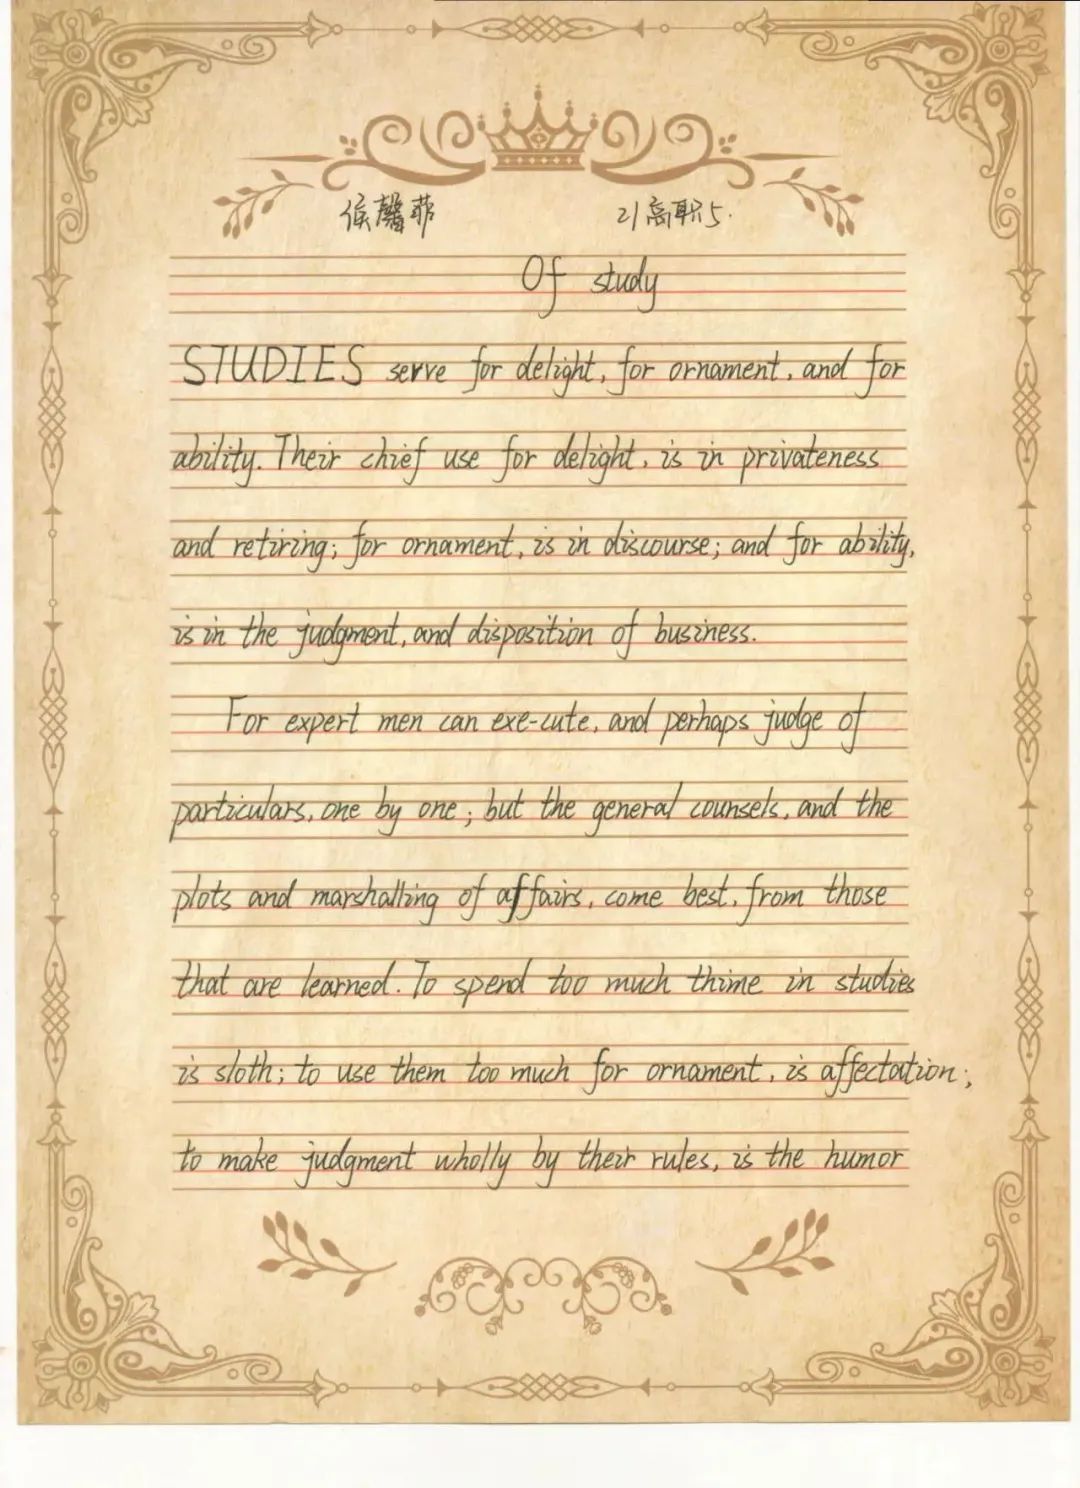 侯馨菲 21高职5.
Of study
STUDIES serve for delight, for ornament, and for
ability. Their chief use for delight, is in privateness
and retiring; for ornament, is in discourse; and for ability,
is in the judgment, and disposition of business.
For expert men can exe-cute, and perhaps judge of
particulars, one by one; but the general counsels, and the
plots and marshalling of affairs, come best, from those
that are learned. To spend too much thime in studies
is sloth; to use them too much for ornament, is affectation;
to make judgment wholly by their rules, is the humor